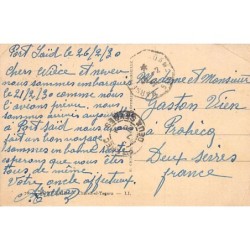 Port Saïd le 26/2/30
Chers nièce et neveu
nous sommes embarqués
le 21/2/30 comme nous
l'avions prévu, nous
sommes arrivés aujourd'hui
à Port Saïd nous avons
fait un bon voyage nous
sommes en bonne santé
esperons que nous êtes
tous de même.
Votre oncle affectueux
Madame et Monsieur
Gaston Vien
à
Deux Sèvres
France
LL